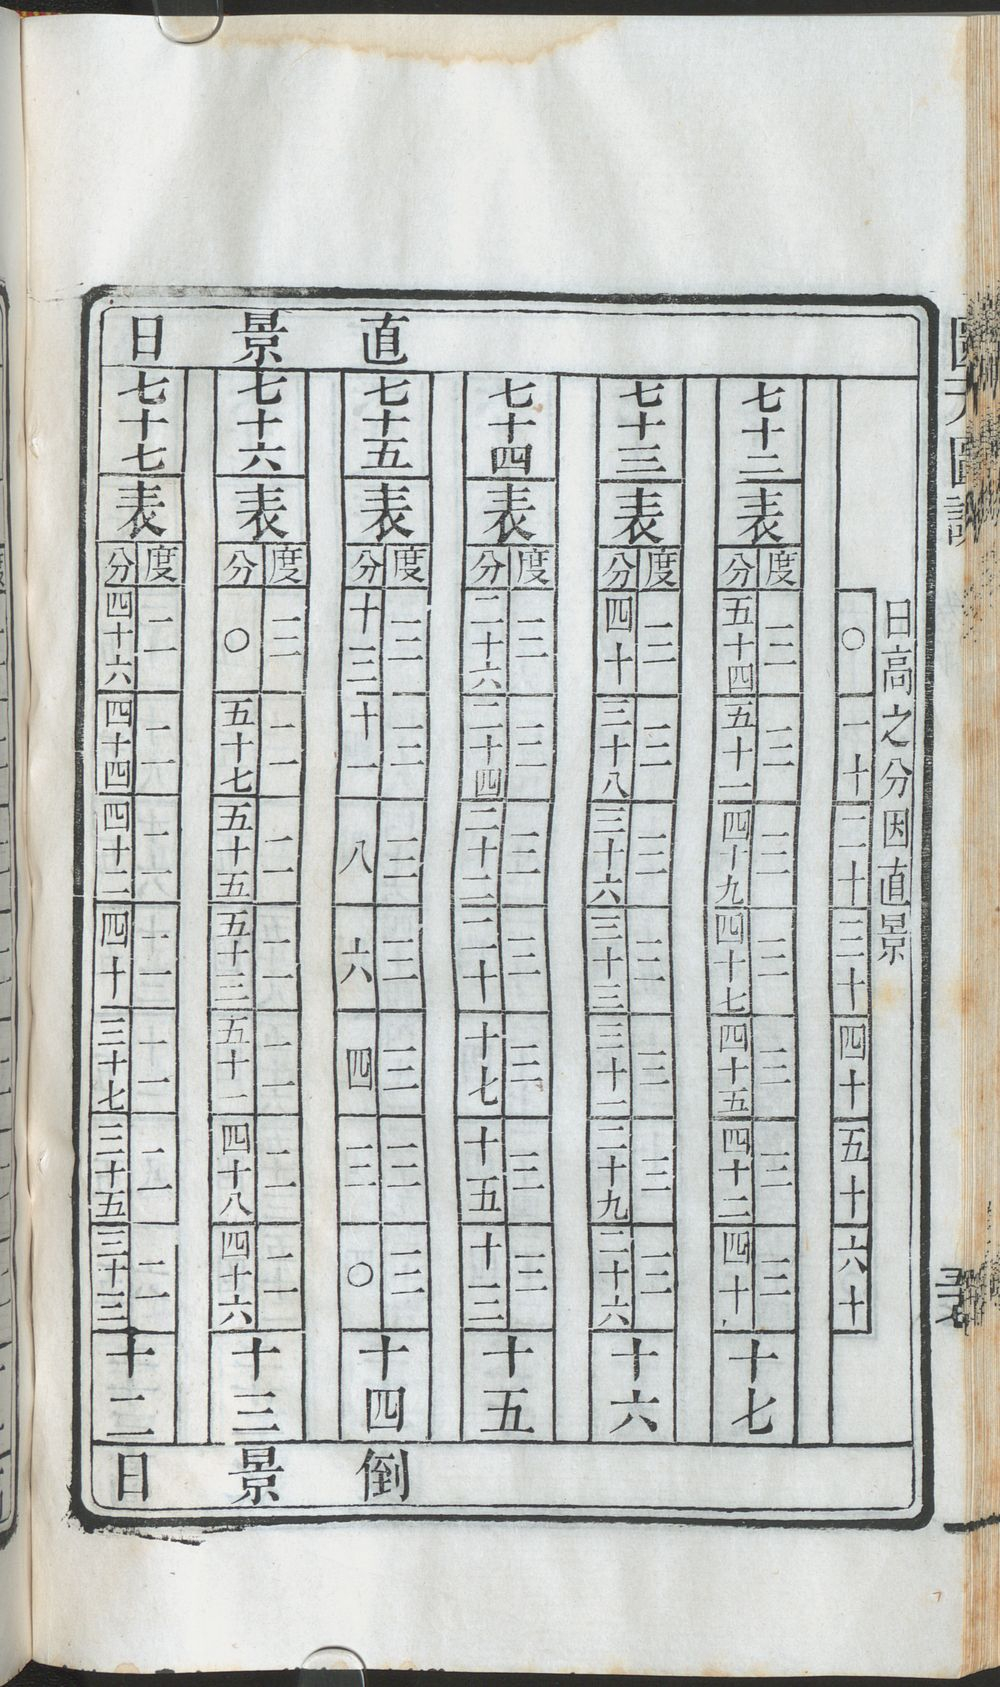 圜天圖說
直景日
日高之分因直景
〇 一十 二十 三十 四十 五十 六十
七十二 表 度 三 三 三 三 三 三 三
分 五十四 五十二 四十九 四十七 四十五 四十二 四十 十七
七十三 表 度 三 三 三 三 三 三 三
分 四十 三十八 三十六 三十三 三十一 二十九 二十六 十六
七十四 表 度 三 三 三 三 三 三 三
分 二十六 二十四 二十二 二十 十七 十五 十三 十五
七十五 表 度 三 三 三 三 三 三 三
分 十三 十一 八 六 四 三 〇 十四
七十六 表 度 三 二 二 二 二 二 二
分 〇 五十七 五十五 五十三 五十一 四十八 四十六 十三
七十七 表 度 二 二 二 二 二 二 二
分 四十六 四十四 四十二 四十 三十七 三十五 三十三 十二
倒景日